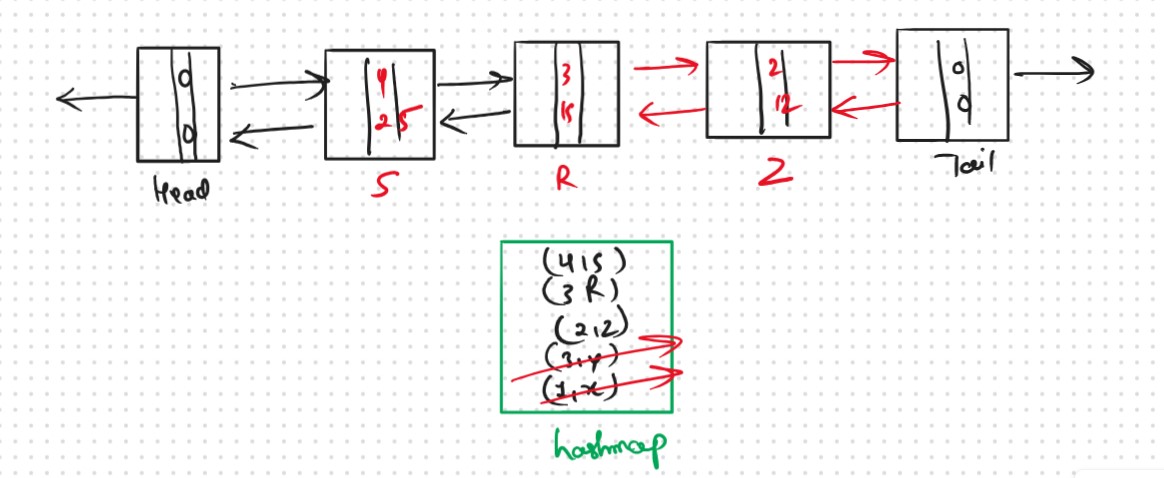 0
0
Head
4
25
S
3
15
R
2
12
Z
0
0
Tail
(4,S)
(3 R)
(2,Z)
(3,y)
(1,x)
hashmap